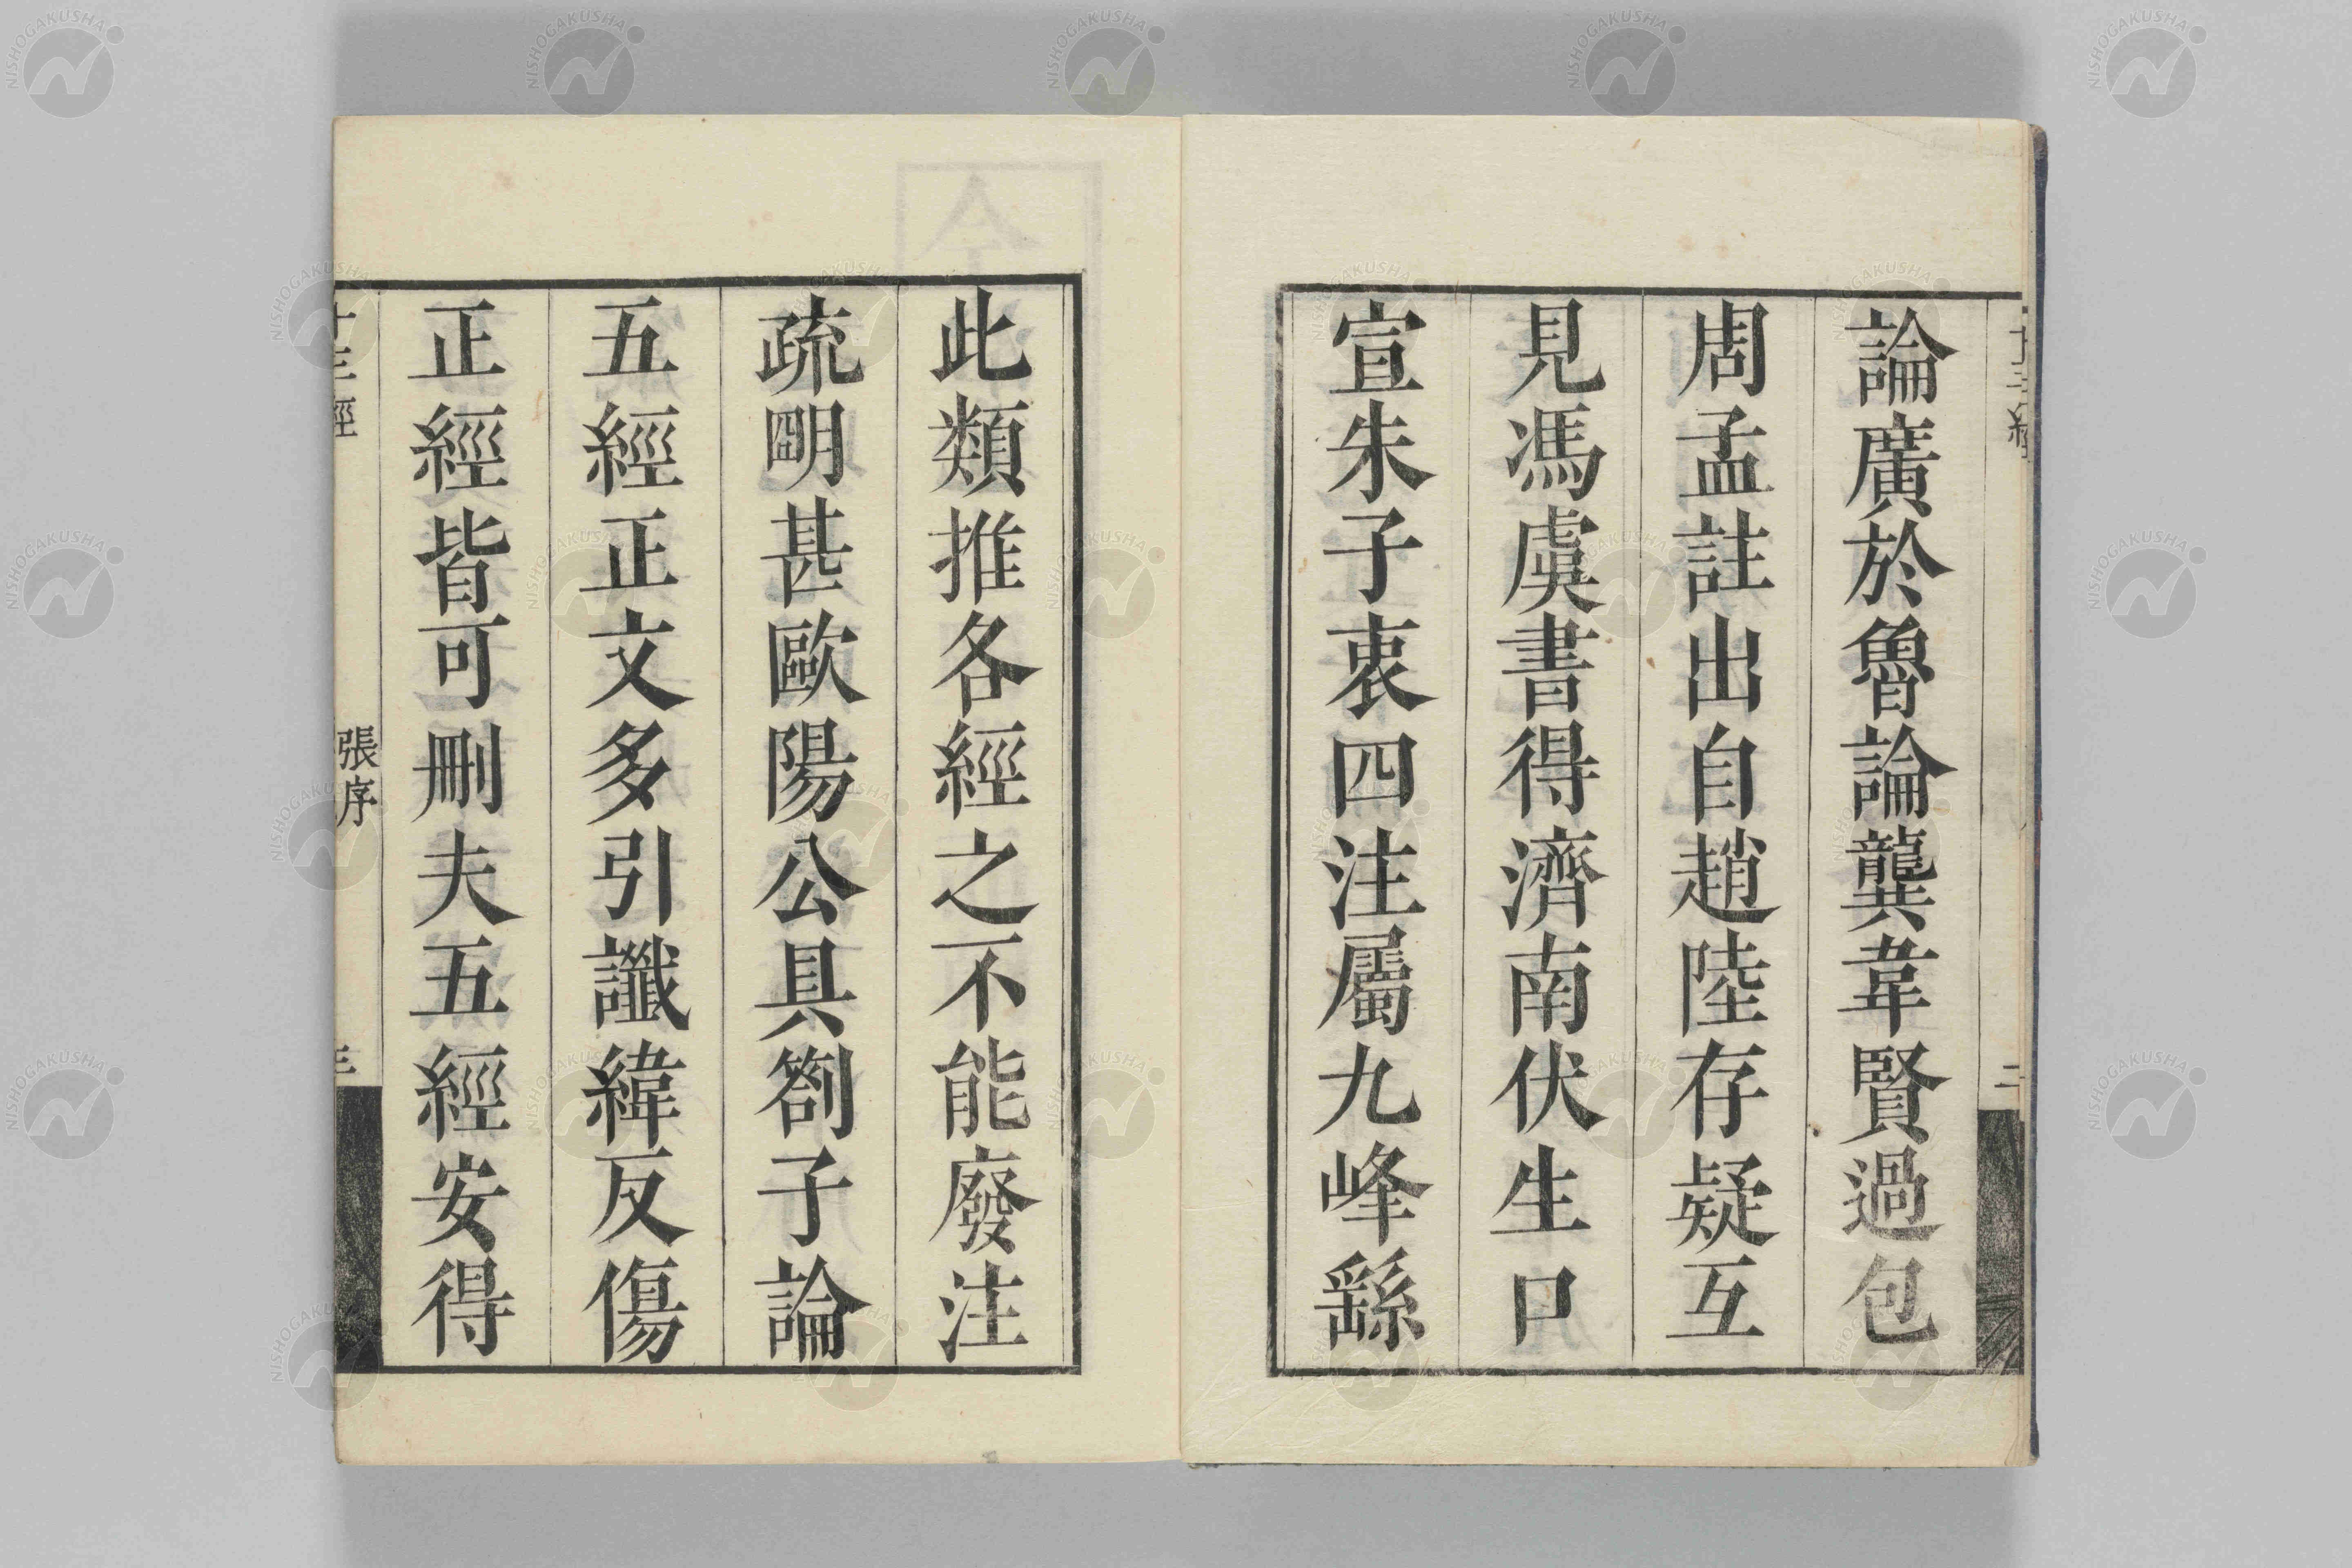 十三經
二
論廣於魯論龔韋賢過包
周孟註出自趙陸存疑互
見馮虞書得濟南伏生口
宣朱子衷四注屬九峰繇
此類推各經之不能廢注
疏朙甚歐陽公具劄子論
五經正文多引讖緯反傷
正經皆可刪夫五經安得
十三經
張序
三
NISHOGAKUSHA